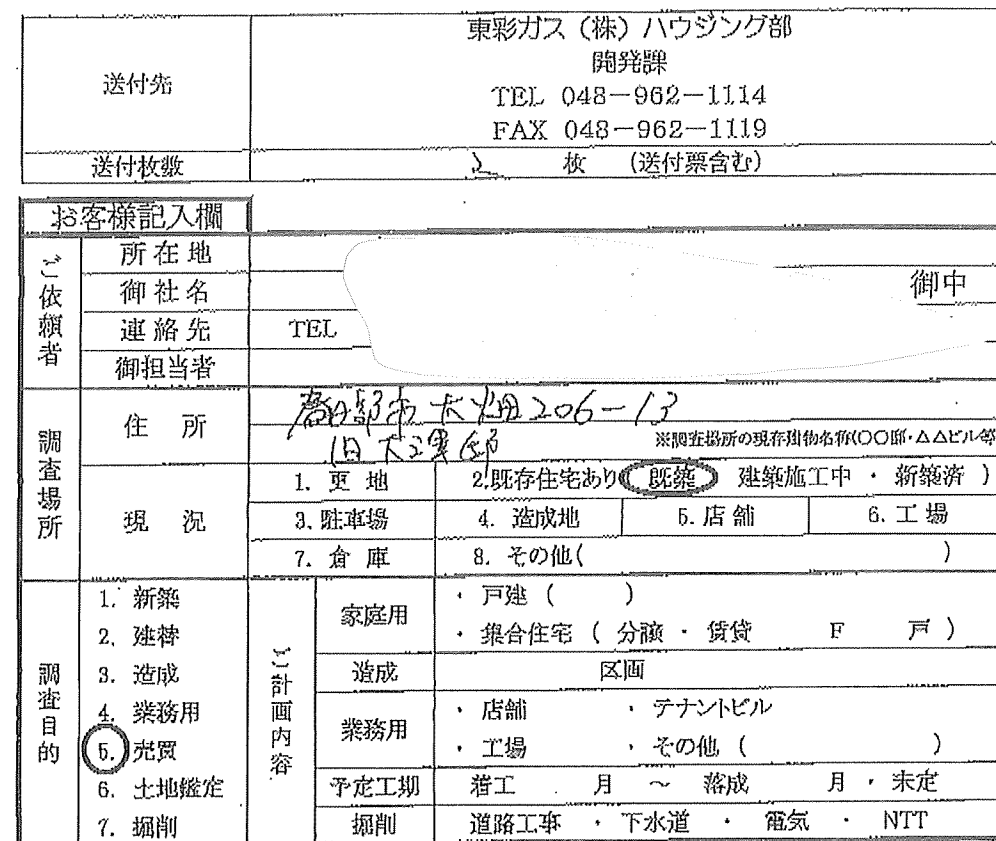 送付先
東彩ガス（株）ハウジング部
開発課
TEL 048－962－1114
FAX 048－962－1119
送付枚数 2 枚 （送付票含む）
お客様記入欄
依頼者
所在地
御社名 御中
連絡先 TEL
御担当者
調査場所
住所 春日部市大畑206－13
旧 邸
※調査場所の現存建物名称(〇〇邸・△△ビル等
現況
1. 更地 2.既存住宅あり( 既築 建築施工中 ・ 新築済 )
3. 駐車場 4. 造成地 5. 店舗 6. 工場
7. 倉庫 8. その他( )
調査目的
1. 新築
2. 建替
3. 造成
4. 業務用
5. 売買
6. 土地鑑定
7. 掘削
計画内容
家庭用 ・ 戸建 ( )
・ 集合住宅 ( 分譲 ・ 賃貸 F 戸 )
造成 区画
業務用 ・ 店舗 ・ テナントビル
・ 工場 ・ その他 ( )
予定工期 着工 月 ～ 落成 月 ・ 未定
掘削 道路工事 ・ 下水道 ・ 電気 ・ NTT